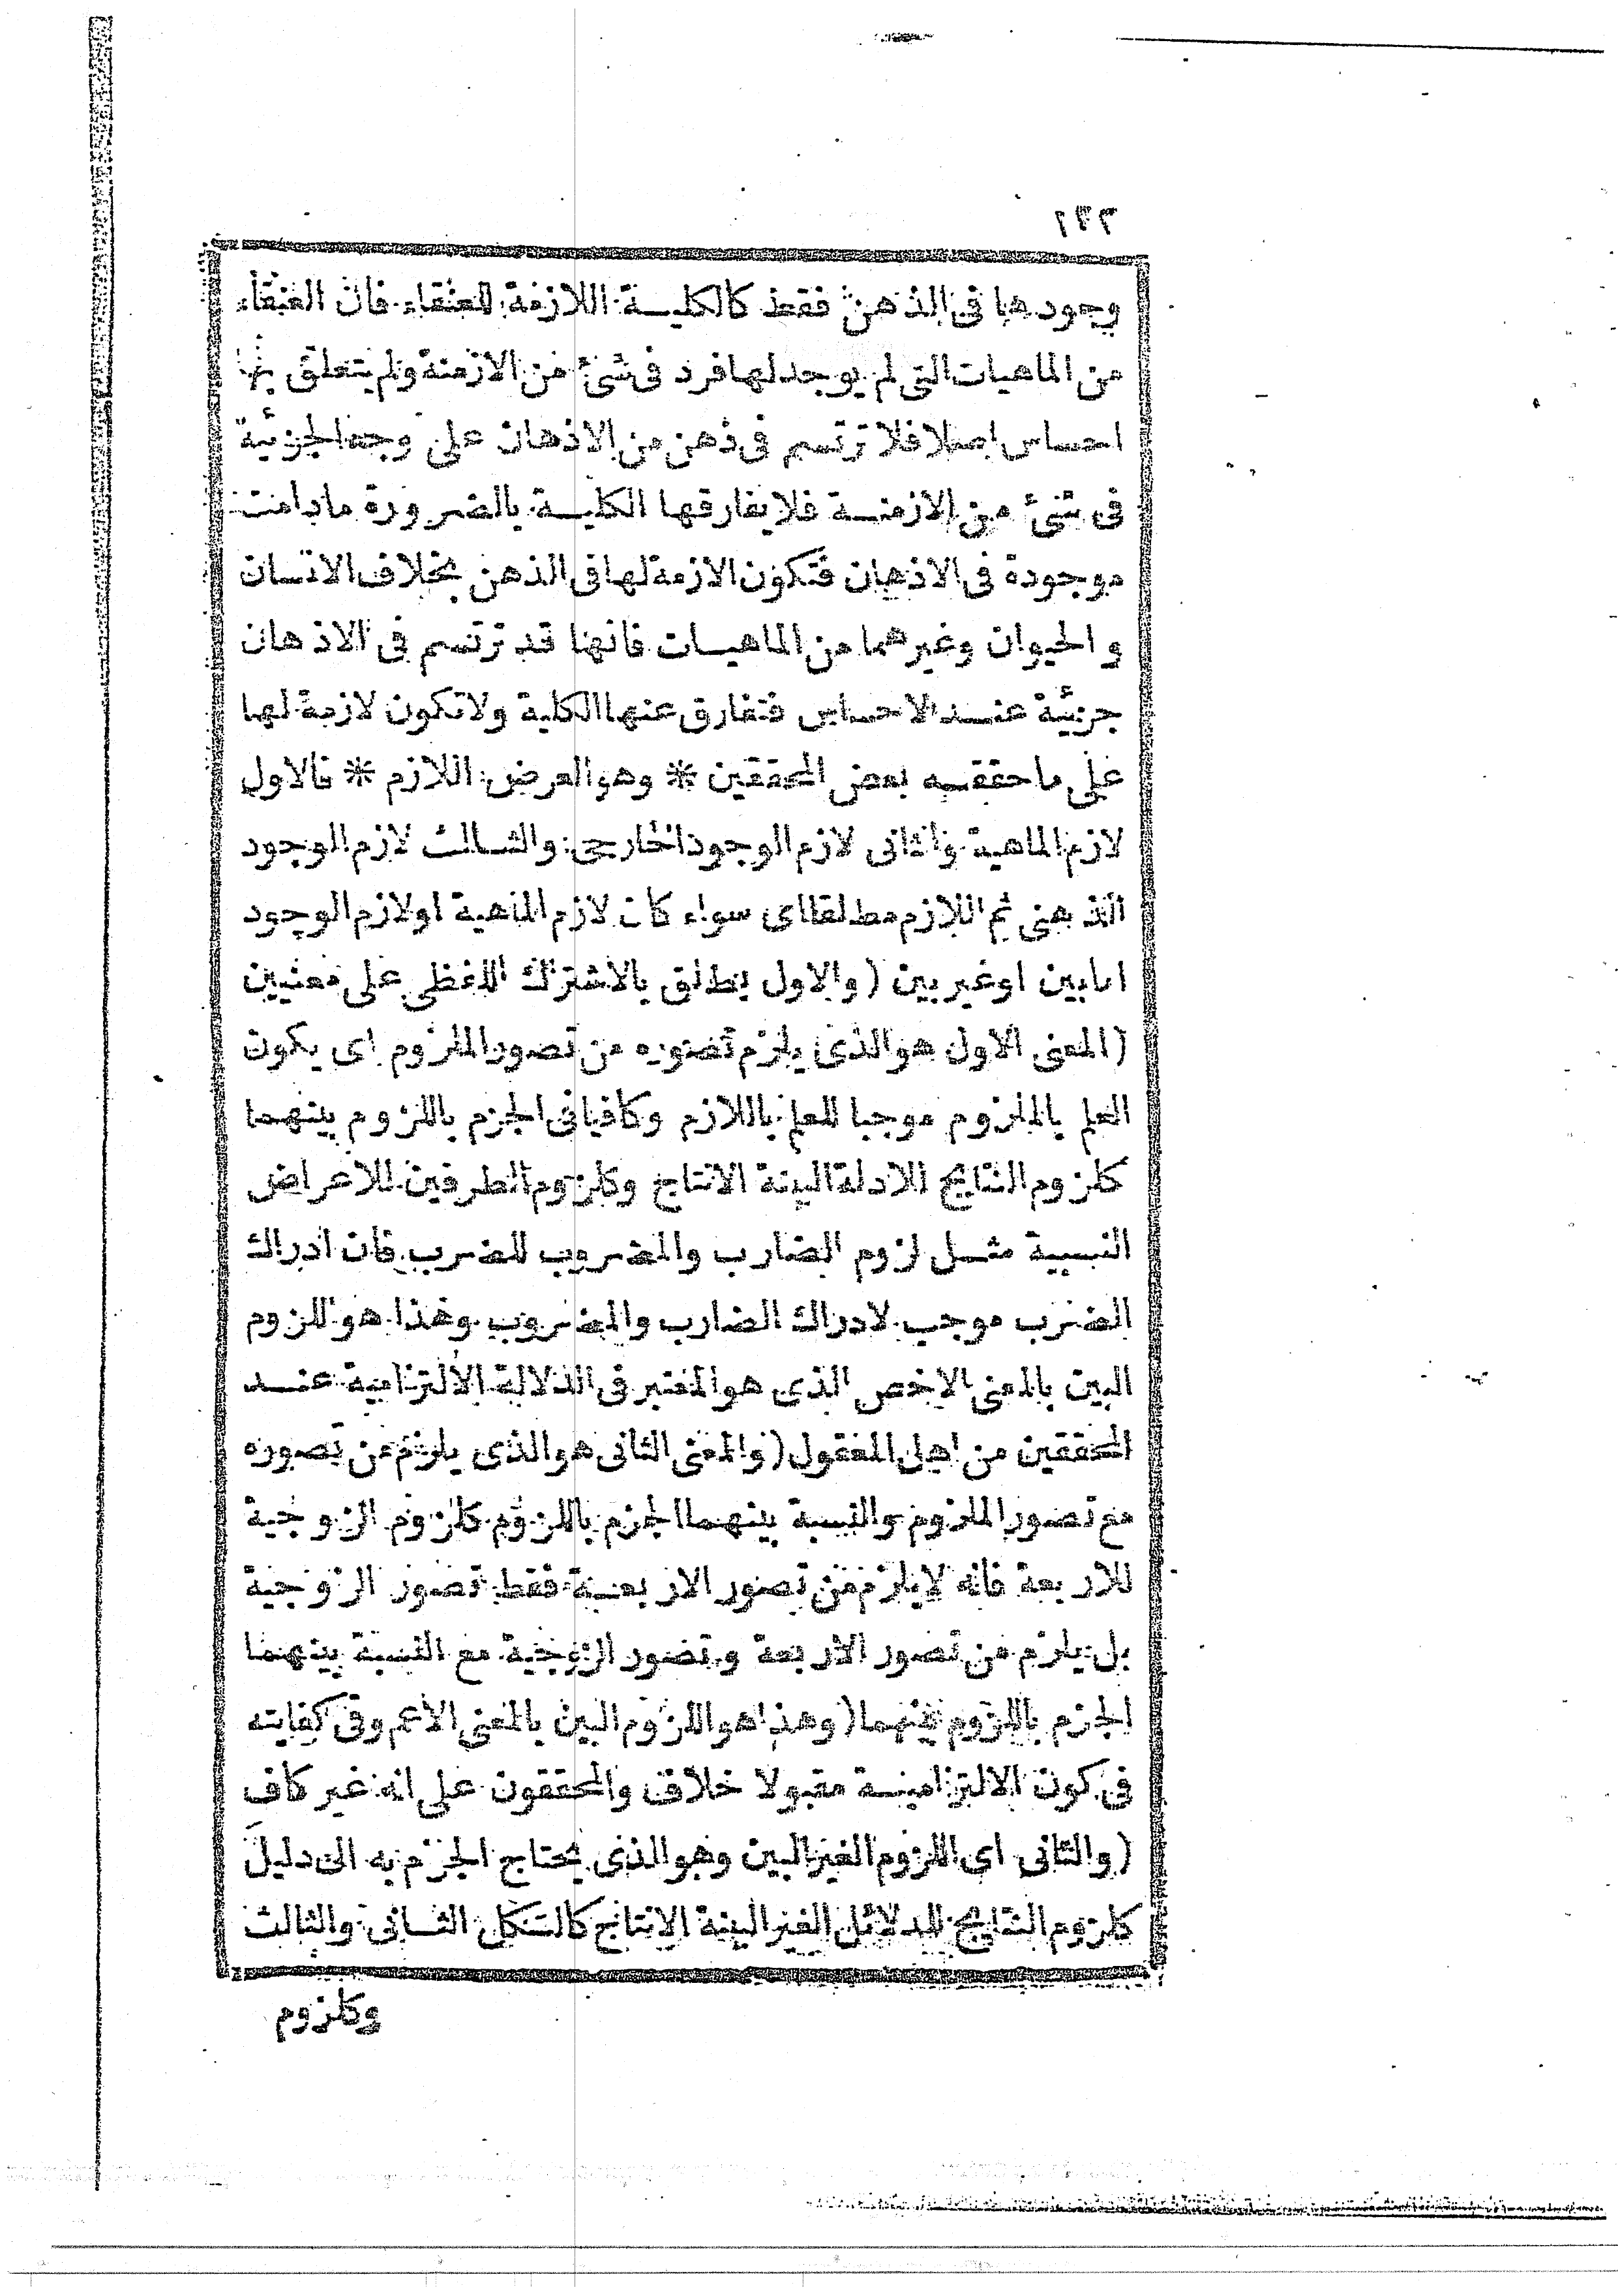 ١٣٢
وجودها فى الذهن فقط كالكلية اللازمة للعنقاء فان العنقاء
من الماهيات التى لم يوجد لها فرد فى شئ من الازمنة ولم يتعلق بها
احساس اصلا فلا ترتسم فى ذهن من الاذهان على وجه الجزئية
فى شئ من الازمنة فلا يفارقها الكلية بالضرورة مادامت
موجودة فى الاذهان فتكون لازمة لها فى الذهن بخلاف الانسان
والحيوان وغيرهما من الماهيات فانها قد ترتسم فى الاذهان
جزئية عند الاحساس فتفارق عنها الكلية ولا تكون لازمة لها
على ما حققه بعض المحققين * وهو العرض اللازم * فالاول
لازم الماهية والثانى لازم الوجود الخارجى والثالث لازم الوجود
الذهنى ثم اللازم مطلقا اى سواء كان لازم الماهية او لازم الوجود
اما بين او غير بين (والاول يطلق بالاشتراك اللفظى على معنيين
(المعنى الاول هو الذى يلزم تصوره من تصور الملزوم اى يكون
العلم بالملزوم موجبا للعلم باللازم وكافيا فى الجزم باللزوم بينهما
كلزوم النتايج للادلة البينة الانتاج وكلزوم الطرفين للاعراض
النسبية مثل لزوم الضارب والمضروب للضرب فان ادراك
الضرب موجب لادراك الضارب والمضروب وهذا هو اللزوم
البين بالمعنى الاخص الذى هو المعتبر فى الدلالة الالتزامية عند
المحققين من اهل المعقول (والمعنى الثانى هو الذى يلزم من تصوره
مع تصور الملزوم والنسبة بينهما الجزم باللزوم كلزوم الزوجية
للاربعة فانه لا يلزم من تصور الاربعة فقط تصور الزوجية
بل يلزم من تصور الاربعة وتصور الزوجية مع النسبة بينهما
الجزم باللزوم بينهما (وهذا هو اللزوم البين بالمعنى الاعم وفى كفايته
فى كون الالتزامية مقبولا خلاف والمحققون على انه غير كاف
(والثانى اى اللزوم الغير البين وهو الذى يحتاج الجزم به الى دليل
كلزوم النتايج للدلائل الغير البينة الانتاج كالشكل الثانى والثالث
وكلزوم